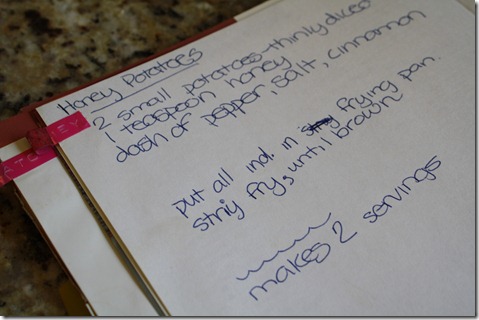 Honey Potatoes
2 small potatoes-thinly diced
1 teaspoon honey
dash of pepper, salt, cinnamon
put all ind. in frying pan.
striy fry, until brown
makes 2 servings